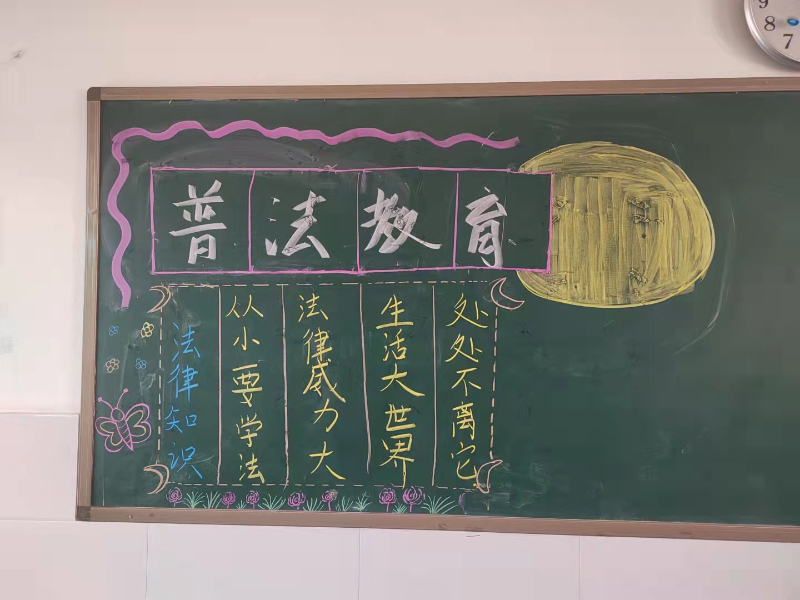 普法教育
法律知识
从小要学法
法律威力大
生活大世界
处处不离它
9
8
7